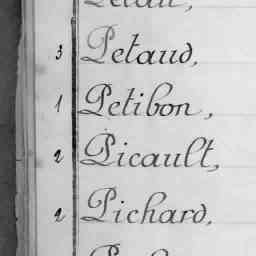 3 Petaud,
1 Petibon,
2 Picault,
2 Pichard,